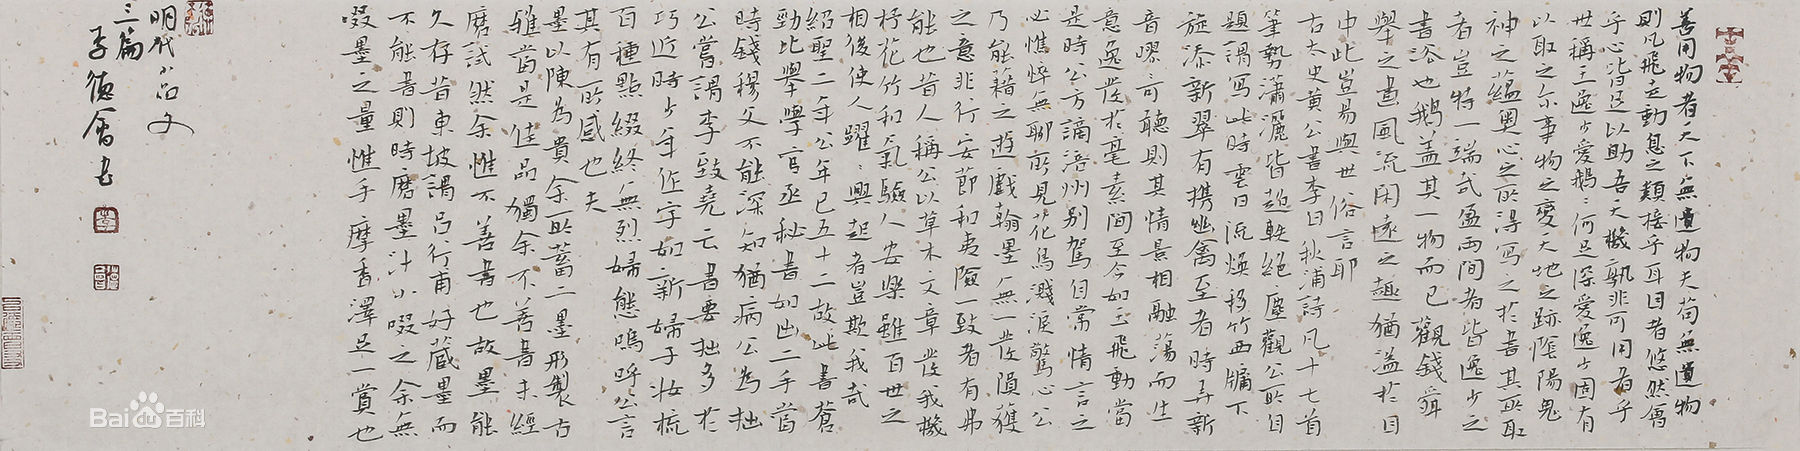 善用物者天下無遺物夫苟無遺物
則凡飛走動息之類接乎耳目者悠然會
乎心皆足以助吾天機孰非可用者乎
世稱王逸少愛鵝鵝何足深愛逸少固有
以取之尔事物之變天地之跡陰陽鬼
神之蘊奧心之所得寫之於書其所取
者豈特一端哉盈兩間者皆逸少之
書法也鵝盖其一物而已觀錢舜
舉之畫風流閑遠之趣猶溢於目
中此豈易與世俗言耶
右太史黃公書李白秋浦詩凡十七首
筆勢瀟灑皆超軼絕塵觀公所自
題謂寫此時雲日流煥移竹西牖下
旋添新翠有攜幽禽至者時弄新
音嚶嚶可聽則其情景相融蕩而生
意逸發於毫素間至今如云飛動當
是時公方謫涪州別駕自常情言之
必惟悴無聊所見花鳥濺淚驚心公
乃能藉之遊戲翰墨無一發隕獲
之意非行安節和夷險一致者有弗
能也昔人稱公以草木文章發我機
杼花竹和氣驗人安樂雖百世之
相後使人躍躍興起者豈欺我哉
紹聖二年公年已五十一故此書蒼
勁比舉學官丞秘書如出二手當
時錢穆父不能深知猶病公為拙
公嘗謂李致堯云書要拙多於
巧近時少年作字如新婦子妝梳
百種點綴終無烈婦態嗚呼公言
其有所感也夫
墨以陳為貴余所蓄二墨形製古
雅當是佳品獨余不善書未經
磨試然余惟不善書也故墨能
久存昔東坡謂呂行甫好藏墨而
不能書則時磨墨汁小啜之余無
啜墨之量惟手摩香澤足一賞也
明代小品文
三篇
李德會書
Baidu百科